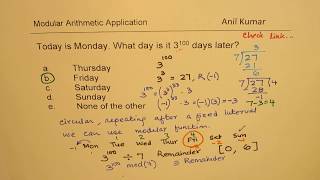 Modular Arithmetic Application
Anil Kumar
check link...
Today is Monday. What day is it 3^100 days later?
a Thursday
b. Friday
c. Saturday
d. Sunday
e. None of the other
3^100
3^3 = 27, R(-1)
3^100 = (3^3)^33 · 3
= (-1)^33 · 3 = (-1)(3) = -3
3
7)27
21
6
7)27(4
28
-1
7-3=4
circular, repeating after a fixed interval
we can use modular function.
-1 Mon Tue Wed Thur Fri Sat -2 Sun -1
3^100 ÷ 7 Remainder [0, 6]
3^100 mod(7) ≡ Remainder